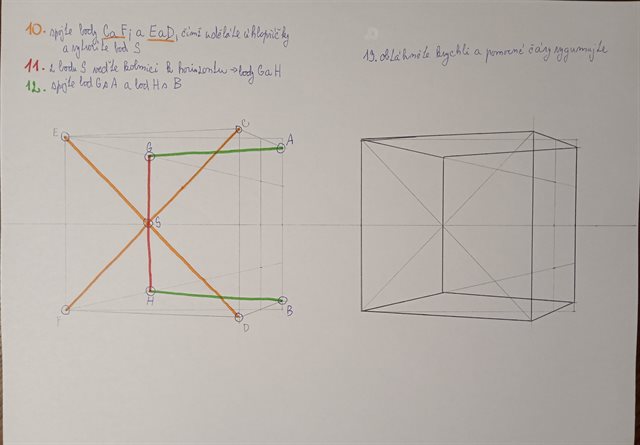 10. spojte body C a F; a E a D, čímž uděláte úhlopříčky
a vytvoříte bod S
11. z bodu S veďte kolmici k horizontu → body G a H
12. spojte bod G s A a bod H s B
13. obtáhněte krychli a pomocné čáry vygumujte
E
C
G
A
S
H
B
F
D